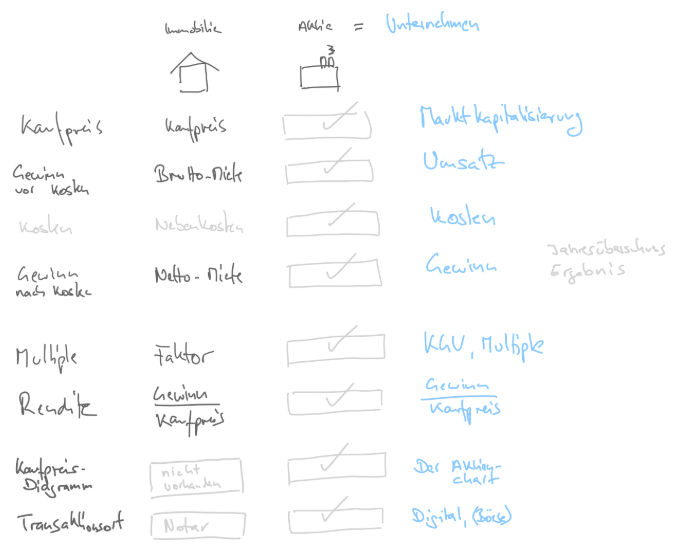 Immobilie Aktie = Unternehmen
Kaufpreis Kaufpreis Marktkapitalisierung
Gewinn
vor Kosten Brutto-Miete Umsatz
Kosten Nebenkosten Kosten
Gewinn
nach Koste Netto-Miete Gewinn Jahresüberschuss
Ergebnis
Multiple Faktor KGV, Multiple
Rendite Gewinn
Kaufpreis Gewinn
Kaufpreis
Kaufpreis-
Diagramm nicht
vorhanden Der Aktien-
chart
Transaktionsort Notar Digital, (Börse)